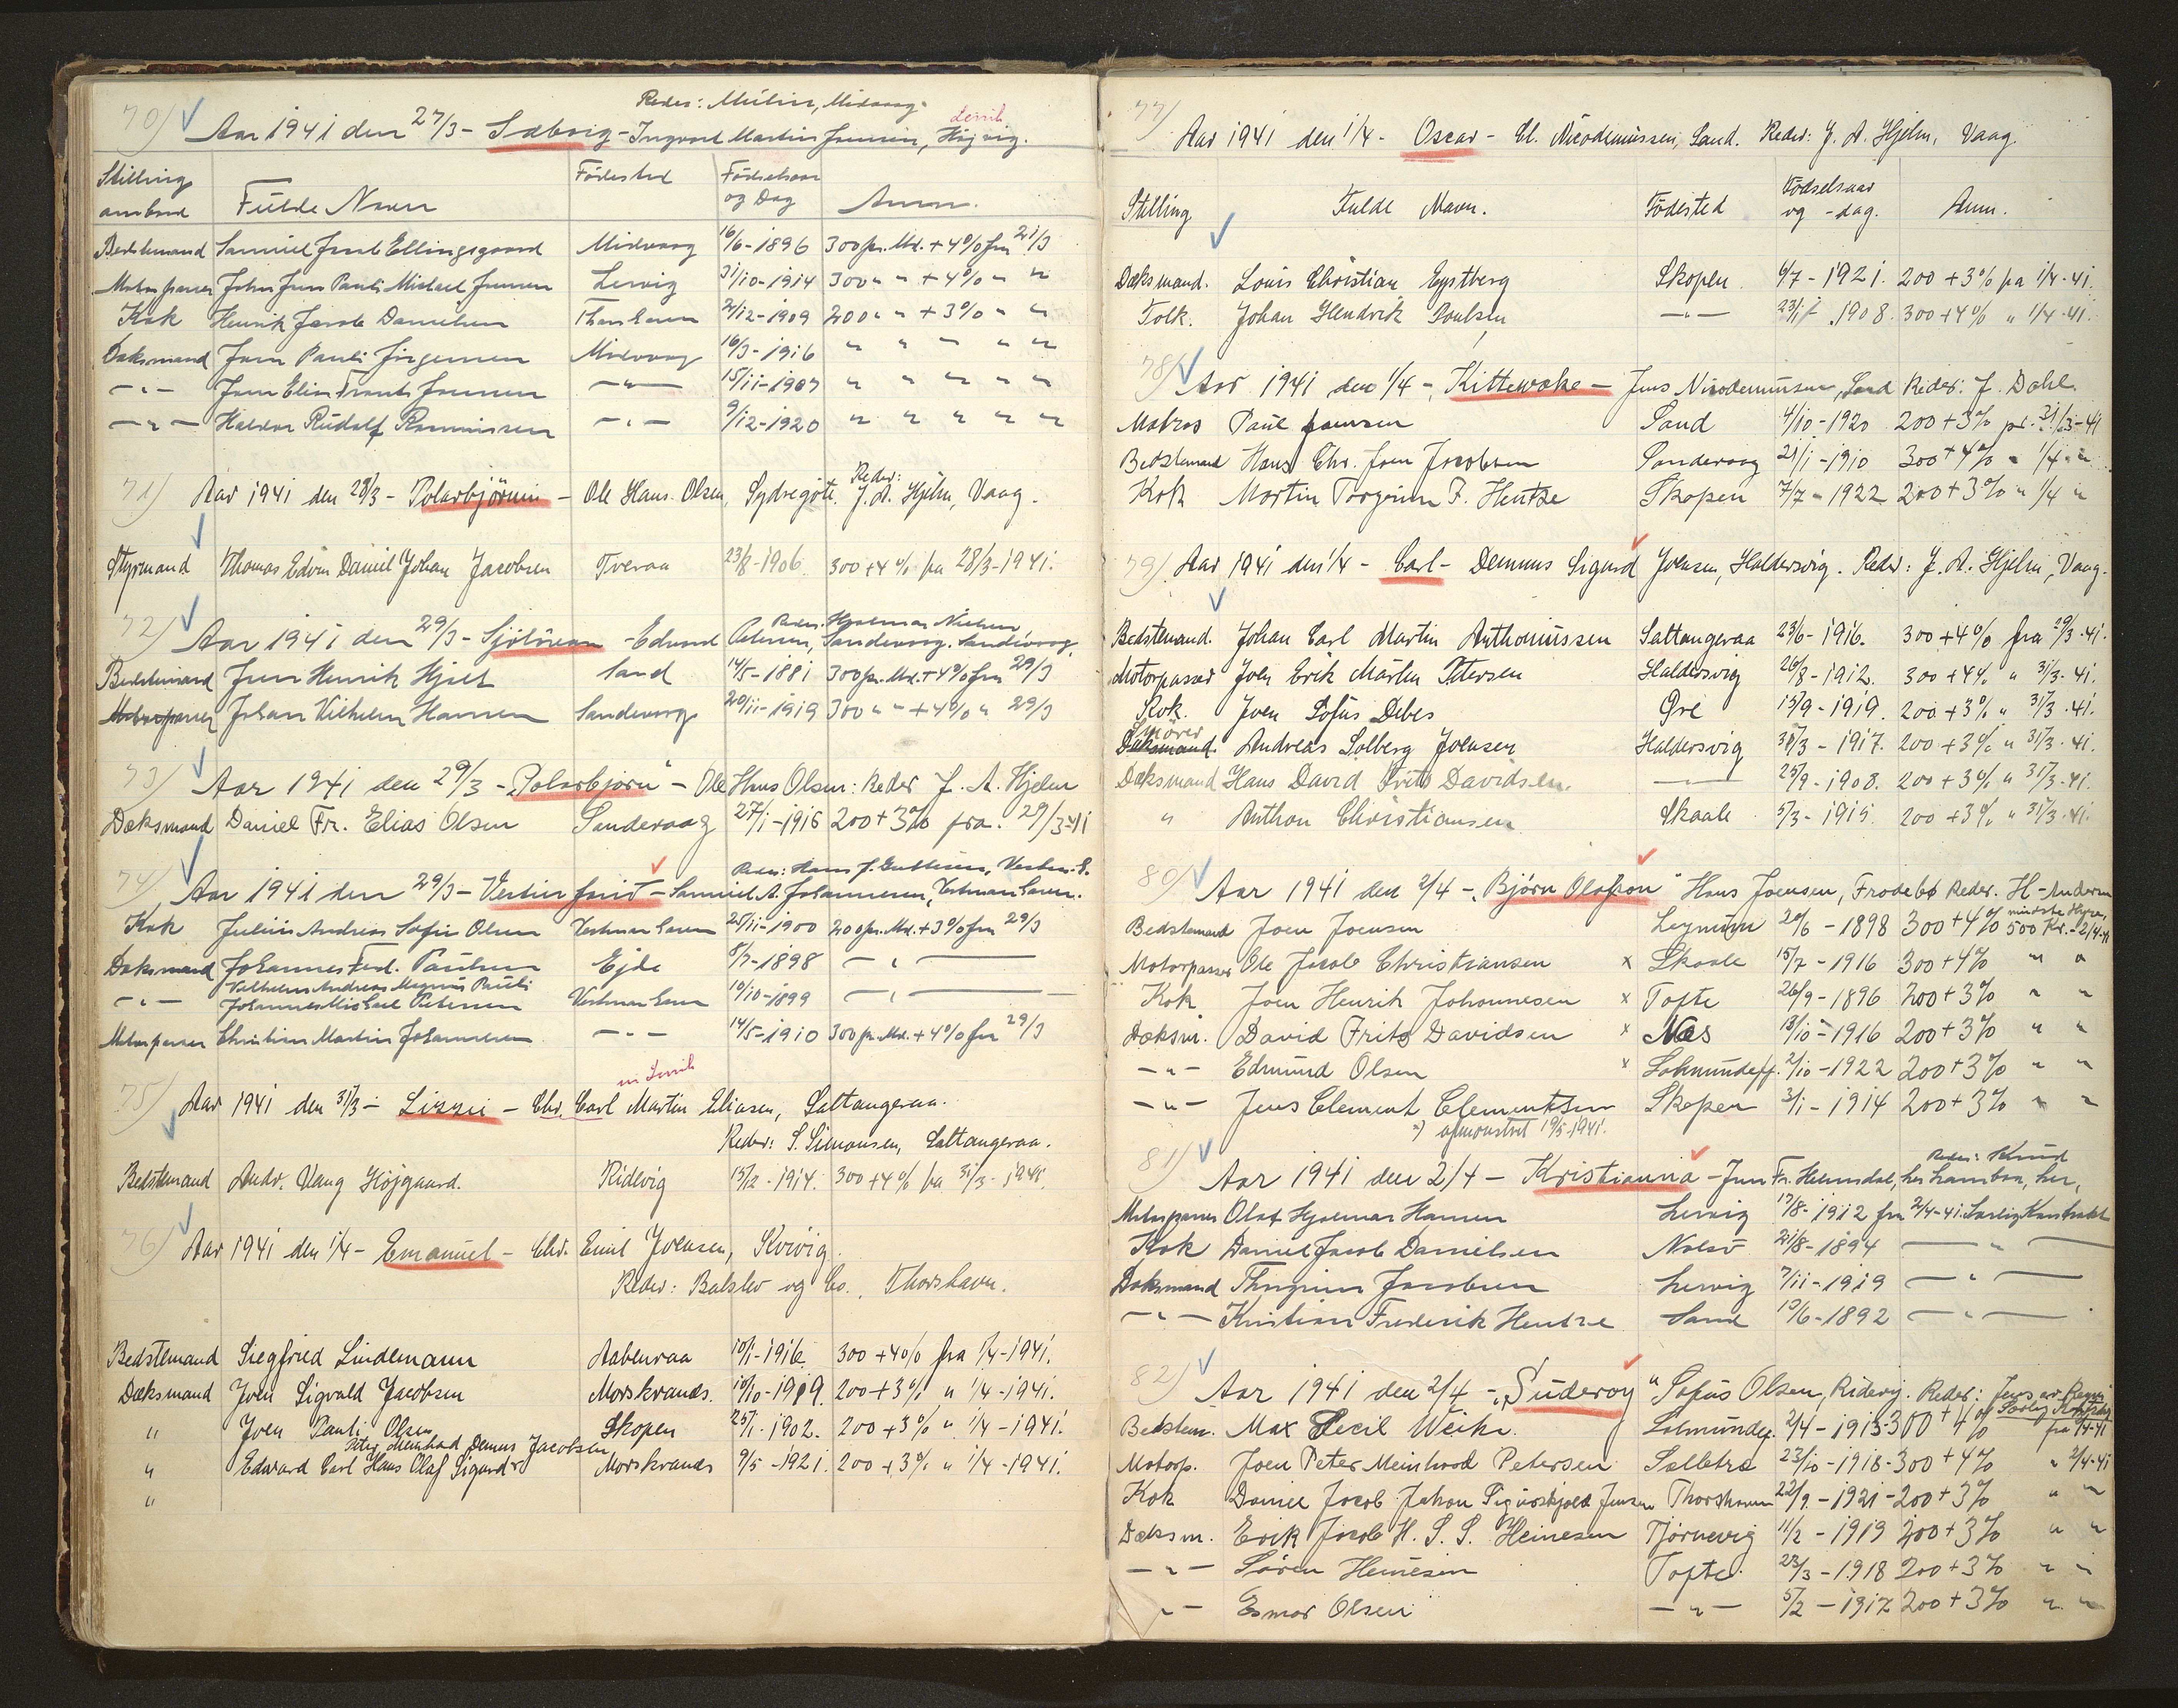 70)
Reder: Müller, Midvaag.
Aar 1941 den 27/3 - Solvig - Ingvard Martin Joensen, Højvig.
Stilling ombord Fulde Navn Födested Födselsaar og Dag Anm.
Bedstemand Samuel Jacob Ellingsgaard Midvaag 16/6-1896 300 pr. Md. + 4% fra 21/3
Motorpasser John Jens Pauli Michael Joensen Lervig 31/10-1914 300 " " + 4% " "
Kok Henrik Jacob Danielsen Thorshavn 2/12-1909 200 " " + 3% " "
Dæksmand Joen Pauli Jörgensen Midvaag 16/3-1916 " " " " "
- " - Joen Elias Frants Joensen - " - 15/11-1907 " " " " "
- " - Haldor Rudolf Rasmussen - " - 9/12-1920 " " " " "
71) Aar 1941 den 28/3 - Polarbjörnin - Ole Hans Olsen, Sydregöte. Reder: J. A. Hjelm, Vaag.
Styrmand Thomas Edvin Daniel Johan Jacobsen Tveraa 23/8-1906 300 + 4% fra 28/3-1941.
72) Reder: Hjalmar Nielsen
Aar 1941 den 29/3 - Sjölivan - Edvard Petersen, Sandevaag. Sandevaag.
Bedstemand Jens Henrik Hjelt Sand 14/5-1881 300 pr. Md. + 4% fra 29/3
Motorpasser Johan Vilhelm Hansen Sandevaag 20/11-1919 300 " " + 4% " 29/3
73) Aar 1941 den 29/3 - "Polarbjørn" - Ole Hans Olsen: Reder J. A. Hjelm
Dæksmand Daniel Fr. Elias Olsen Sandevaag 27/1-1915 200 + 3% fra. 29/3-41
Reder: Hans J. Vestm. h.
74) Aar 1941 den 29/3 - Vesturfarid - Samuel A. Johannesen, Vestmanhavn.
Kok Julius Andreas Sofus Olsen Vestmanhavn 25/11-1900 200 pr. Md. + 3% fra 29/3
Dæksmand Johannes Ferd. Paulsen Ejde 8/7-1898 - " -
Vilhelm Andreas Magnus Pauli
- " - Johannes Michael Petersen Vestmanhavn 10/10-1899 - " -
Motorpasser Christian Martin Johannesen - " - 14/5-1910 300 pr. Md. + 4% fra 29/3
75) Aar 1941 den 31/3 - Lizzie - Chr. Carl Martin Eliasen, Saltangeraa.
Reder: S. Simonsen, Saltangeraa.
Bedstemand Andr. Vang Höjgaard. Ridevig 15/2-1914. 300 + 4% fra 31/3-1941.
76) Aar 1941 den 1/4 - Emanuel - Chr. Emil Joensen, Kvivig.
Reder: Balslev og Co., Thorshavn.
Bedstemand Siegfried Lindemann Aabenraa 10/1-1916. 300 + 4% fra 1/4-1941.
Dæksmand Joen Sigvald Jacobsen Morskranes. 10/10-1919. 200 + 3% " 1/4-1941.
" Joen Pauli Olsen Skopen 25/1-1902. 200 + 3% " 1/4-1941.
Peter Meinhard Demus Jacobsen
" Edward Carl Hans Olaf Sigurd Morskranes 9/5-1921. 200 + 3% " 1/4-1941.
"
77)
Aar 1941 den 1/4 - Oscar - Cl. Nicodemussen, Sand. Reder: J. A. Hjelm, Vaag.
Stilling Fulde Navn. Födested Födselsaar og -dag. Anm.
Dæksmand. Louis Christian Eystberg Skopen 6/7-1921. 200 + 3% fra 1/4-41.
Folk. Johan Hendrik Poulsen - " - 23/1-1908. 300 + 4% " 1/4-41.
78) Aar 1941 den 1/4 - "Kittewake - Jens Nicodemussen, Sand Reder: J. Dahl.
Matros Paul Joensen Sand 4/10-1920 200 + 3% pr. 31/3-41
Bedstemand Hans Chr. Joen Jacobsen Sandevaag 21/1-1910 300 + 4% " 1/4 "
Kok Martin Torgrim F. Hentze Skopen 7/7-1922 200 + 3% " 1/4 "
79) Aar 1941 den 1/4 - Carl - Demmus Sigurd Joensen, Haldersvig. Reder: J. A. Hjelm, Vaag.
Bedstemand. Johan Carl Martin Anthoniussen Saltangeraa 23/6-1916. 300 + 4% fra 29/3-41.
Motorpasser Joen Erik Mårten Petersen Haldersvig 26/8-1912. 300 + 4% " 31/3-41.
Kok. Joen Sofus Debes Gve 15/9-1919. 200 + 3% " 31/3-41.
Smører
Dæksmand. Andreas Solberg Joensen Haldersvig 30/3-1917. 200 + 3% " 31/3-41.
Dæksmand Hans David Frits Davidsen. - " - 25/9-1908. 200 + 3% " 31/3-41.
" Anthon Christiansen Skaale 5/3-1915 200 + 3% " 31/3-41.
80) Aar 1941 den 2/4 - "Björn Olafson" Hans Joensen, Frodebø Reder. H- Andersen
Bedstemand Joen Joensen Leynum 20/6-1898 300 + 4% mindste Hyre, 500 Kr. - 2/4-41
Motorpasser Ole Jacob Christiansen x Skaale 15/7-1916 300 + 4% " "
Kok Joen Henrik Johannesen x Tofte 26/9-1896 200 + 3% " "
Dæksm. David Frits Davidsen x Næs 13/10-1916 200 + 3% " "
- " - Edmund Olsen x Lokmundefj. 2/10-1922 200 + 3% " "
- " - Jens Clement Clementsen Skopen 3/1-1914 200 + 3% " "
x) afmønstret 19/5-1941.
81) Reder: Knud
Aar 1941 den 2/4 - Kristianna - Jens Fr. Helmsdal, her, her,
Motorpasser Olaf Hjalmar Hansen Lervig 17/8-1912 fra 2/4-41. Særlig Kontrakt
Kok Daniel Jacob Danielsen Nolsö 21/8-1894 - " -
Dæksmand Thorgrim Jacobsen Lervig 7/11-1919 - " -
- " - Kristian Frederik Hentze Sand 10/6-1892 - " -
82) Aar 1941 den 2/4 - "Suderoy" Sofus Olsen, Ridevig. Reder:
Bedstem. Max Cecil Weihe Lokmundefj. 2/4-1913 300 + 4% fra 1/4-41
Motorp. Joen Peter Meinhard Petersen Selletræ 23/10-1918-300 + 4% " 2/4-41
Kok Daniel Jacob Johan Joensen Thorshavn 22/9-1921-200 + 3% " "
Dæksm. Erik Jacob H. S. S. Heinesen Tjørnevig 11/2-1919 200 + 3% " "
- " - Søren Heinesen Tofte 23/3-1918 200 + 3% " "
- " - Esmar Olsen - " - 5/2-1917 200 + 3% " "